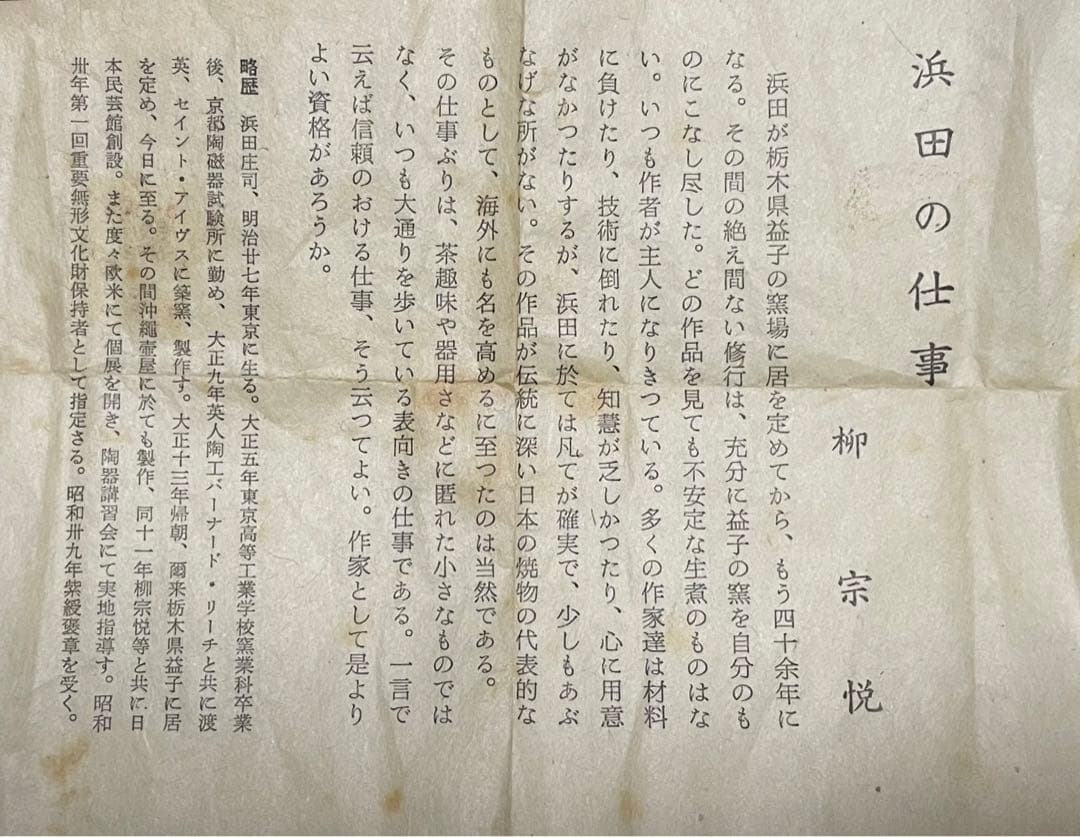 浜田の仕事
柳宗悦
浜田が栃木県益子の窯場に居を定めてから、もう四十余年に
なる。その間の絶え間ない修行は、充分に益子の窯を自分のも
のにこなし尽した。どの作品を見ても不安定な生煮のものはな
い。いつも作者が主人になりきつている。多くの作家達は材料
に負けたり、技術に倒れたり、知慧が乏しかつたり、心に用意
がなかつたりするが、浜田に於ては凡てが確実で、少しもあぶ
なげな所がない。その作品が伝統に深い日本の焼物の代表的な
ものとして、海外にも名を高めるに至つたのは当然である。
その仕事ぶりは、茶趣味や器用さなどに匿れた小さなものでは
なく、いつも大通りを歩いている表向きの仕事である。一言で
云えば信頼のおける仕事、そう云つてよい。作家として是より
よい資格があろうか。
略歴 浜田庄司、明治廿七年東京に生る。大正五年東京高等工業学校窯業科卒業
後、京都陶磁器試験所に勤め、大正九年英人陶工バーナード・リーチと共に渡
英、セイント・アイヴスに築窯、製作す。大正十三年帰朝、爾来栃木県益子に居
を定め、今日に至る。その間沖縄壺屋に於ても製作、同十一年柳宗悦等と共に日
本民芸館創設。また度々欧米にて個展を開き、陶器講習会にて実地指導す。昭和
卅年第一回重要無形文化財保持者として指定さる。昭和卅九年紫綬褒章を受く。